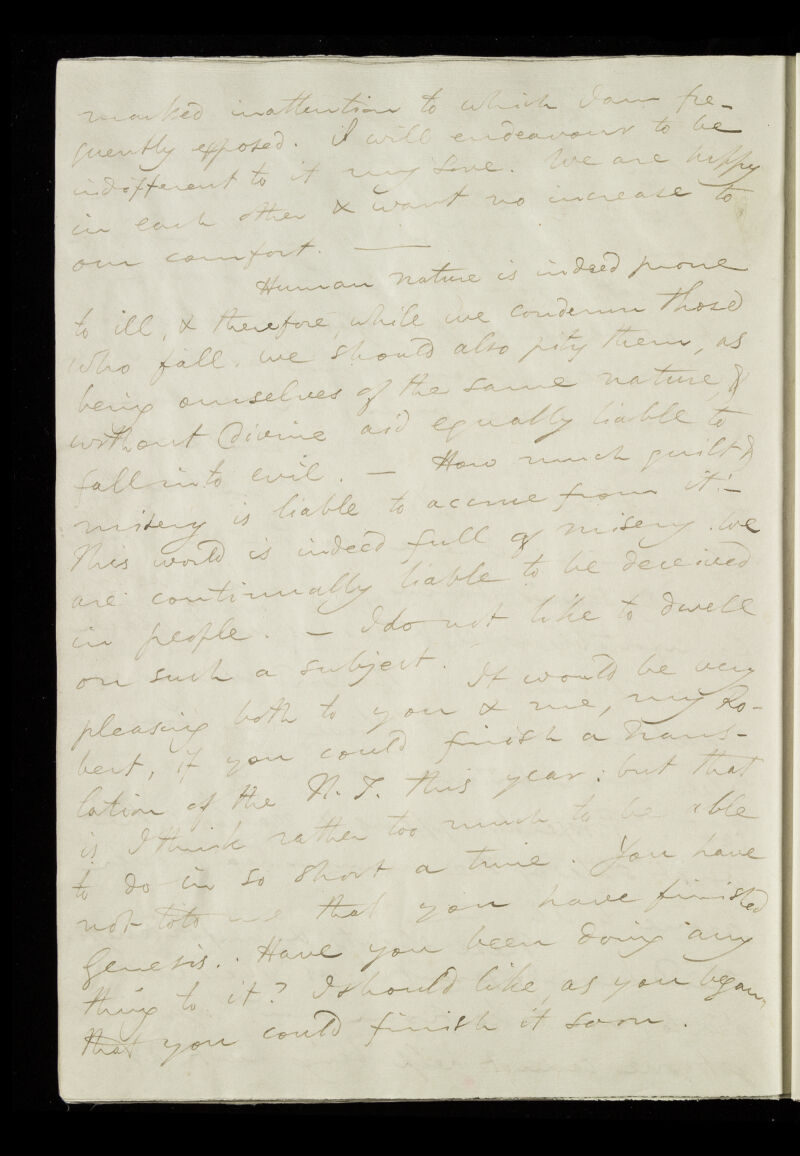 marked inattention to which I am fre-
quently exposed. I will endeavour to be
indifferent to it my love. We are happy
in each other & want no increase to
our comfort. —
Human nature is indeed prone
to ill, & therefore, while we condemn those
who fall, we should also pity them, as
being ourselves of the same nature, &
without Divine aid equally liable to
fall into evil. — How much guilt &
misery is liable to accrue from it! —
This world is indeed full of misery. We
are continually liable to be deceived
in people. — I do not like to dwell
on such a subject. It would be very
pleasing both to you & me, my Ro-
bert, if you could finish a Trans-
lation of the N. T. this year: but that
is I think rather too much to be able
to do in so short a time. You have
not told me that you have finished
Genesis. Have you been doing any
thing to it? I should like, as you began,
that you could finish it soon.